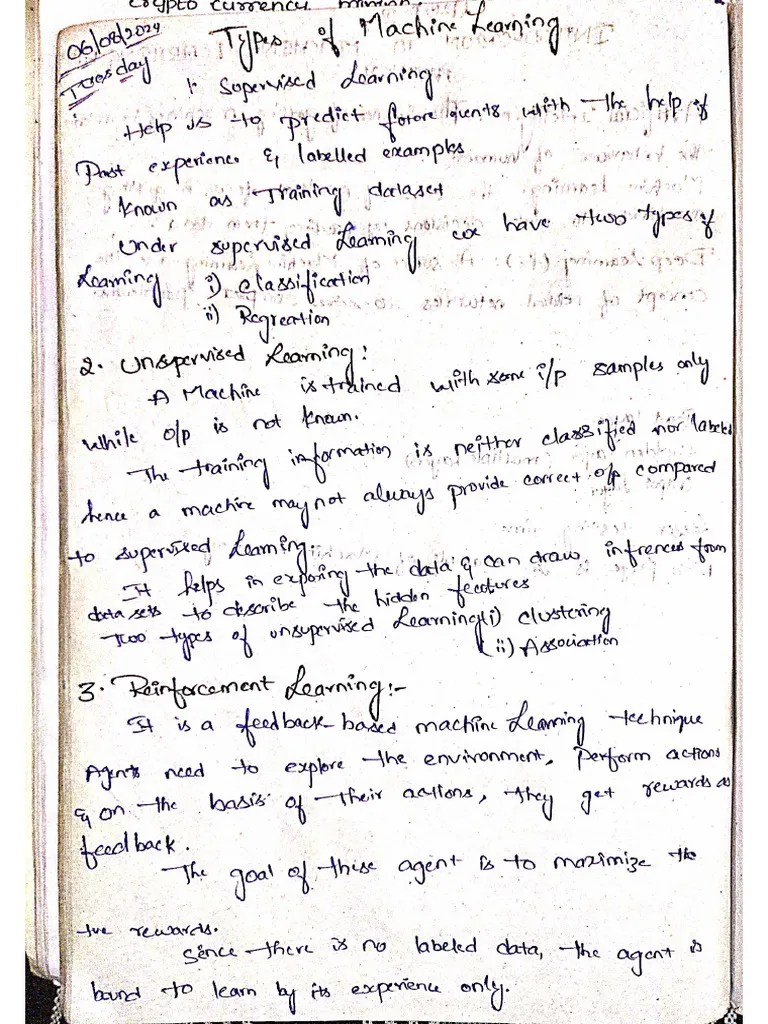 Crypto currency mining
06/08/2024
Tuesday
Types of Machine Learning
1. Supervised Learning:
Help us to predict future events with the help of
Past experience & labelled examples
Known as Training dataset
Under supervised Learning we have two types of
Learning i) classification
ii) Regreation
2. Unsupervised Learning:
A Machine is trained with some i/p samples only
while o/p is not known.
The training information is neither classified nor labeled
hence a machine may not always provide correct o/p compared
to supervised Learning.
It helps in exporing the data & can draw infrences from
data sets to describe the hidden features
Two types of unsupervised Learning (i) clustering
(ii) Association
3. Reinforcement Learning:-
It is a feedback-based machine Learning technique
Agents need to explore the environment, Perform actions
& on the basis of their actions, they get rewards as
feedback.
The goal of these agent is to maximize the
+ve rewards.
Since there is no labeled data, the agent is
bound to learn by its experience only.